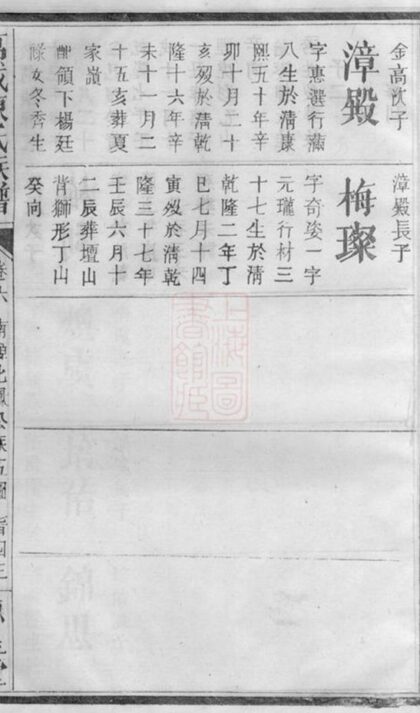 金高次子
漳殿
字惠選行滿
八生於清康
熙五十年辛
卯十月二十
亥歿於清乾
隆十六年辛
未十一月二
十五亥葬夏
家嵓
領下楊廷
祿女冬秀生
漳殿長子
梅璨
字奇姿一字
元瓏行材三
十七生於清
乾隆二年丁
巳七月十四
寅歿於清乾
隆三十七年
壬辰六月十
二辰葬壇山
背獅形丁山
癸向
卷六
上海圖書館藏